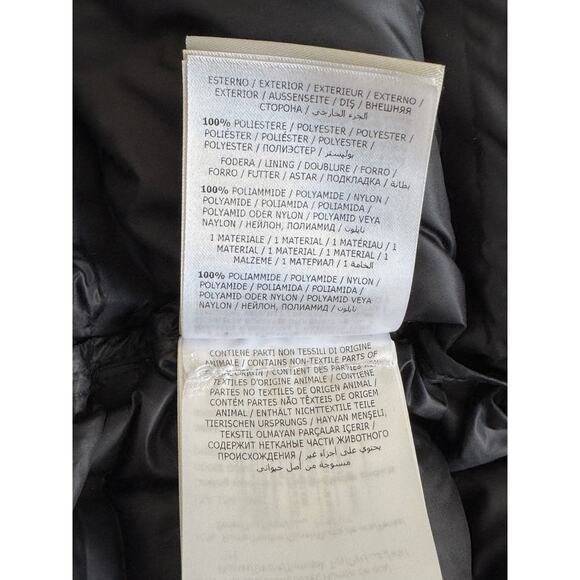 ESTERNO / EXTERIOR / EXTERIEUR / EXTERNO /
EXTERIOR / AUSSENSEITE / DIŞ / ВНЕШНЯЯ
СТОРОНА / الجزء الخارجي
100% POLIESTERE / POLYESTER / POLYESTER /
POLIÉSTER / POLIÉSTER / POLYESTER /
POLYESTER / ПОЛИЭСТЕР / بوليستر
FODERA / LINING / DOUBLURE / FORRO /
FORRO / FUTTER / ASTAR / ПОДКЛАДКА / بطانة
100% POLIAMMIDE / POLYAMIDE / NYLON /
POLYAMIDE / POLIAMIDA / POLIAMIDA /
POLYAMID ODER NYLON / POLYAMID VEYA
NAYLON / НЕЙЛОН, ПОЛИАМИД / نايلون
1 MATERIALE / 1 MATERIAL / 1 MATÉRIAU / 1
MATERIAL / 1 MATERIAL / 1 MATERIAL / 1
MALZEME / 1 МАТЕРИАЛ / 1 الخامة
100% POLIAMMIDE / POLYAMIDE / NYLON /
POLYAMIDE / POLIAMIDA / POLIAMIDA /
POLYAMID ODER NYLON / POLYAMID VEYA
NAYLON / НЕЙЛОН, ПОЛИАМИД / نايلون
CONTIENE PARTI NON TESSILI DI ORIGINE
ANIMALE / CONTAINS NON-TEXTILE PARTS OF
ORIGIN / CONTIENT DES PARTIES NON
TEXTILES D'ORIGINE ANIMALE / CONTIENE
PARTES NO TEXTILES DE ORIGEN ANIMAL /
CONTÉM PARTES NÃO TÊXTEIS DE ORIGEM
ANIMAL / ENTHÄLT NICHTTEXTILE TEILE
TIERISCHEN URSPRUNGS / HAYVAN MENŞELİ,
TEKSTIL OLMAYAN PARÇALAR IÇERIR /
СОДЕРЖИТ НЕТКАНЫЕ ЧАСТИ ЖИВОТНОГО
ПРОИСХОЖДЕНИЯ / يحتوي على أجزاء غير
منسوجة من أصل حيواني